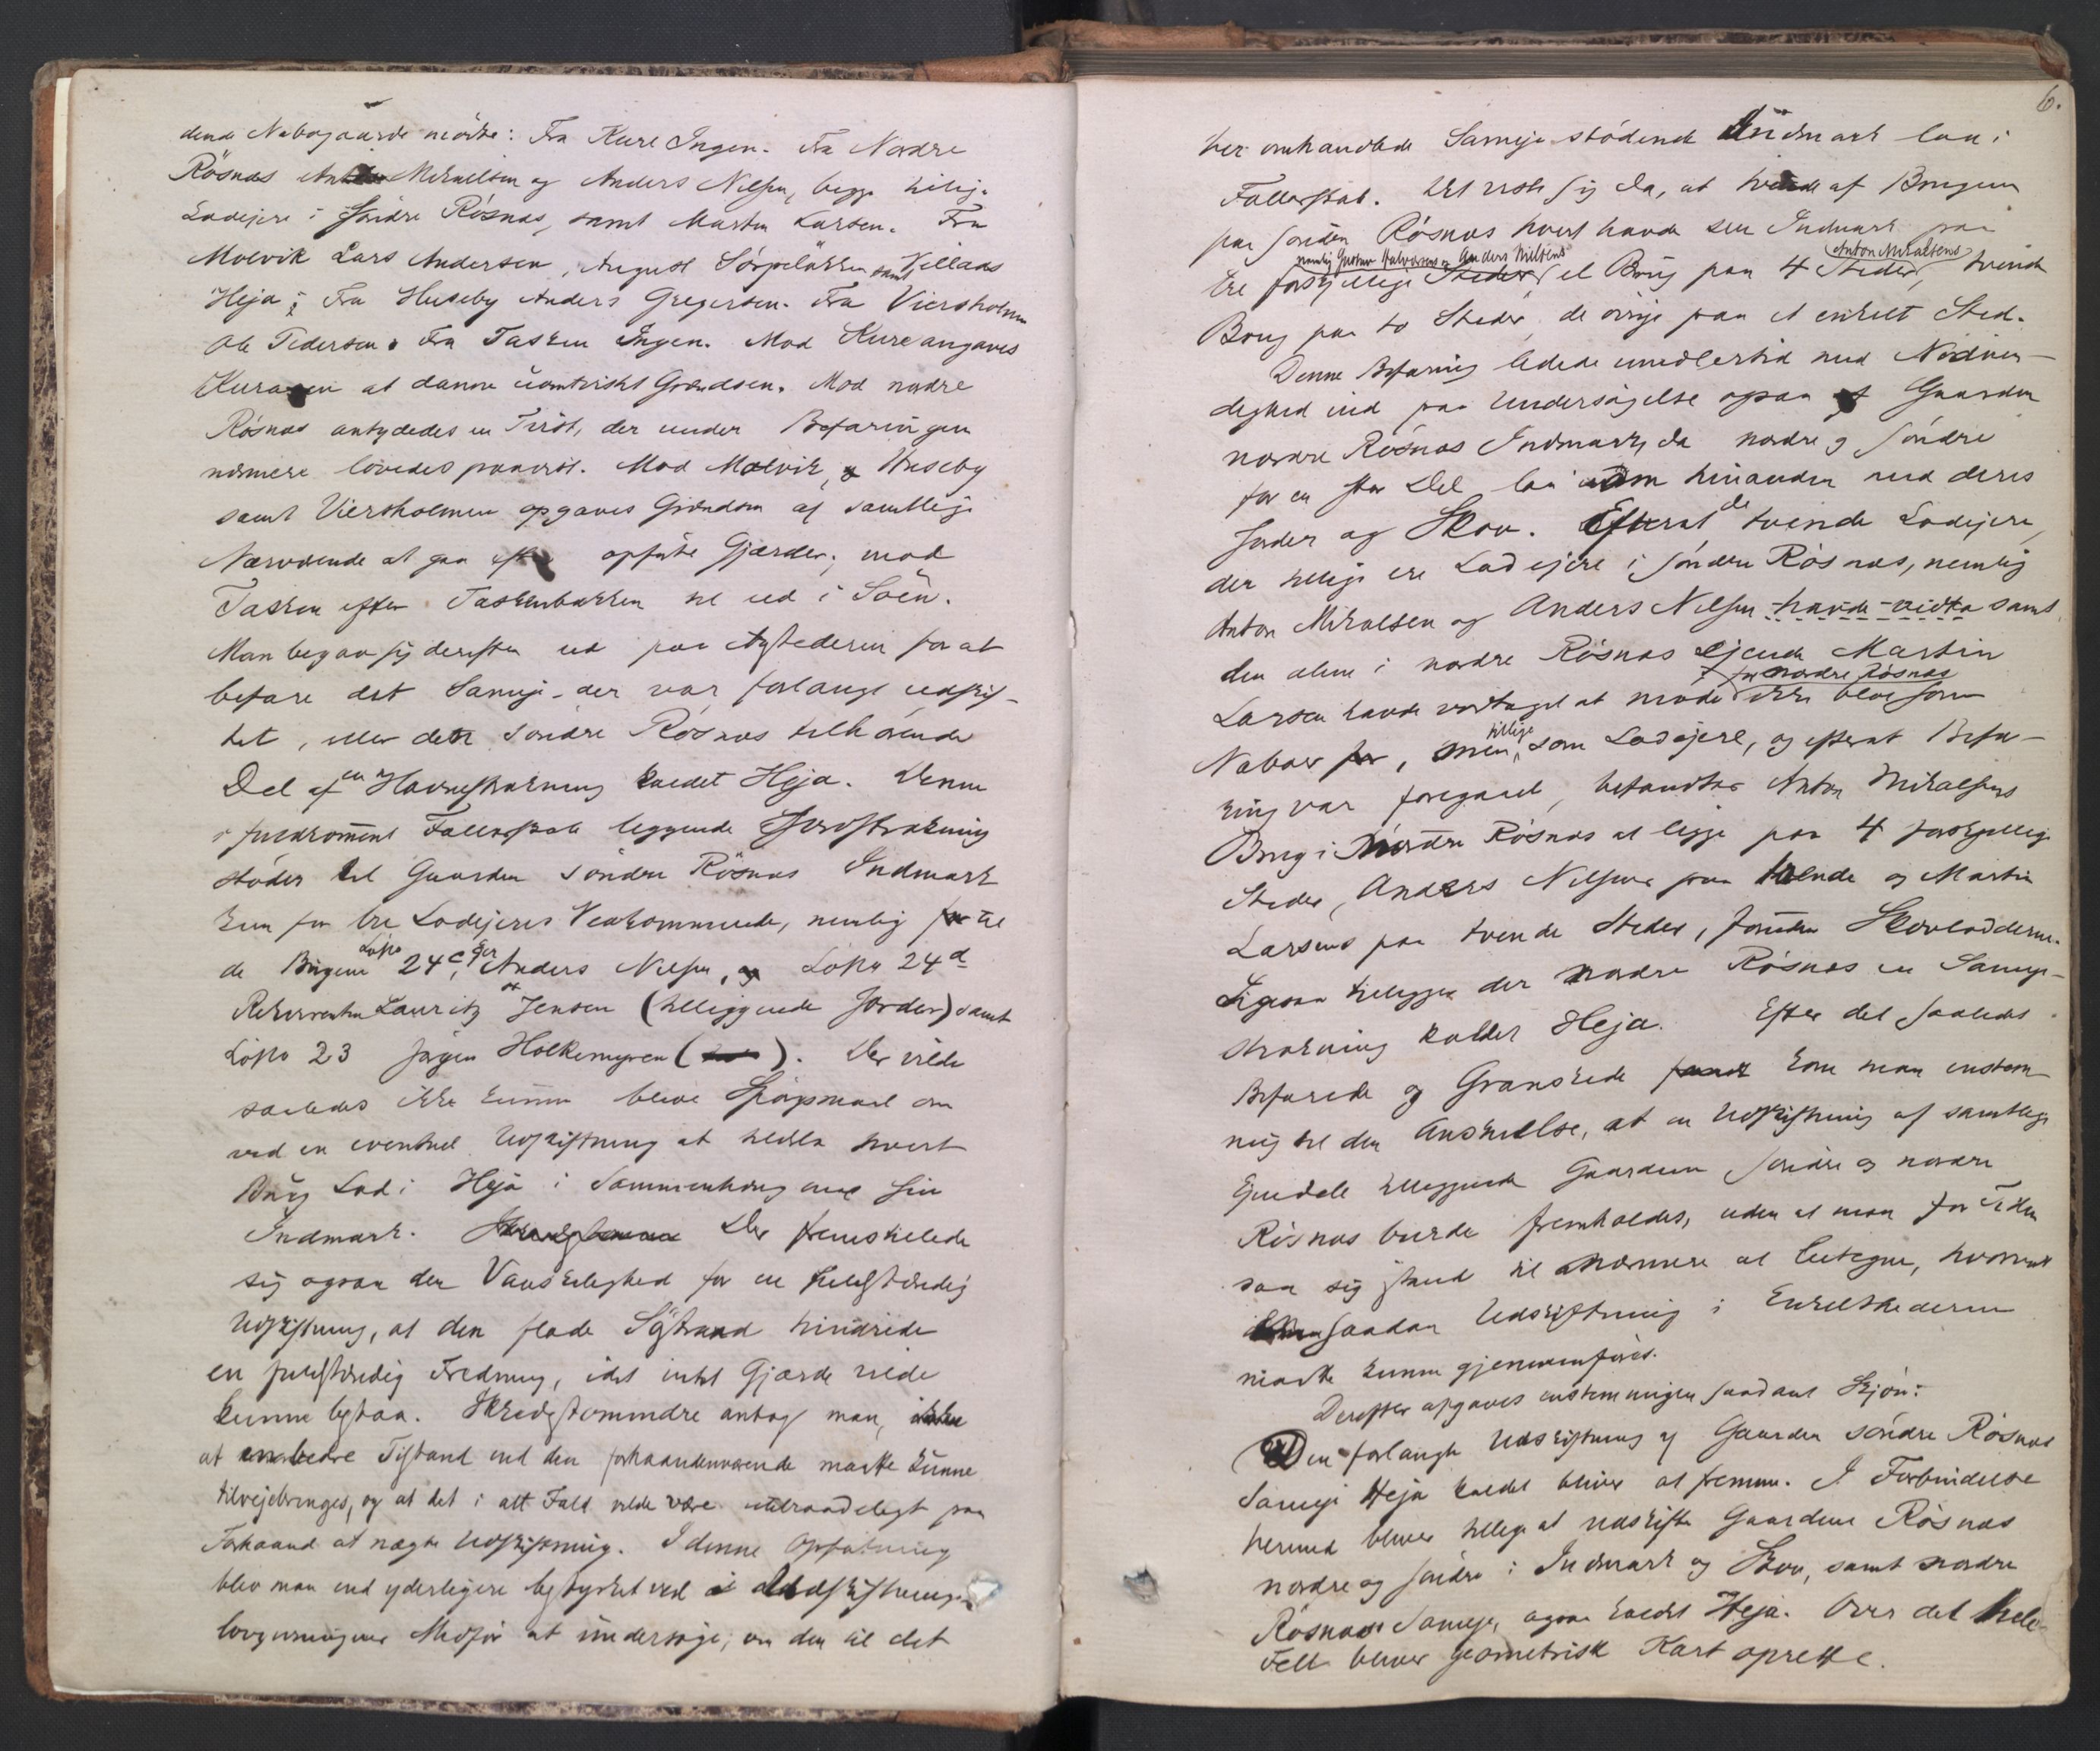 dende Nabogaarde mödte: Fra Kure Ingen. Fra Nordre
Rösnæs Anton Mikaelsen og Anders Nilsen, begge tillige
Lodejere i Söndre Rösnæs, samt Martin Larsen. Fra
Molvik Lars Andersen, August Sörpeløkken samt Killaas
Heja; Fra Huseby Anders Gregersen. Fra Viersholmen
Ole Pedersen. Fra Tasken Ingen. Mod Kure angaves
Kuraaen at danne uomtvistet Grændsen. Mod nordre
Rösnæs antydedes en Tvist, der under Befaringen
nærmere lovedes paavist. Mod Molvik, Huseby
samt Viersholmen opgaves Grændsen af samtlige
Nærværende at gaa efter opsatte Gjærder; mod
Tasken efter Taskenbækken til ud i Söen.
Man begav sig derefter ud paa Aastederne for at
befare det Sameje der var forlangt udskif-
tet, eller den Söndre Rösnæs tilhörende
Del af en Havnestrækning kaldet Heja. Denne
i fuldkomment Fællesskab liggende Jordstrækning
støder til Gaarden söndre Rösnæs Indmark
kun for tre Lodejeres Vedkommende, nemlig til
de Brugene Löpno 24c, Ejer Anders Nilsen, Löpno 24d
Rekvirenten Lauritz Jensen (tilliggende Jorder) samt
Löpno 23 Jörgen Holkemyren. Der vilde
saaledes ikke kunne blive Spörgsmaal om
ved en eventuel Udskiftning at tildele hvert
Brug Lod i Heja i Sammenhæng med sin
Indmark. Der fremstillede
sig ogsaa den Vanskelighed for en fuldstændig
Udskiftning, at den flade Söstrand hindrede
en fuldstændig Fredning, idet intet Gjærde vilde
kunne bestaa. Ikkedestomindre antog man,
at en bedre Tilstand end den forhaandenværende maatte kunne
tilvejebringes, og at det i alt Fald vilde være utilraadeligt paa
Forhaand at nægte Udskiftning. I denne Opfatning
blev man end yderligere bestyrket ved i Udskiftnings-
lovgivningens Medför at undersöge, om den til det
6.
her omhandlede Sameje stödende Indmark laa i
Fællesskab. Det viste sig da, at tvende af Brugene
paa söndre Rösnæs hvert havde sin Indmark paa
nemlig Gustav Halvorsens og Anders Nilsens
Anton Mikalsens
tre forskjellige Steder, et Brug paa 4 Steder, tvende
Brug paa to Steder, de övrige paa et enkelt Sted.
Denne Befaring ledede imidlertid med Nödven-
dighed ind paa Undersögelse ogsaa af Gaarden
nordre Rösnæs Indmark, da nordre og söndre
for en stor Del laa om hinanden med deres
Jorder og Skov. Efterat de tvende Lodejere,
der tillige ere Lodejere i söndre Rösnæs, nemlig
Anton Mikalsen og Anders Nilsen havde vidta samt
den alene i nordre Rösnæs ejende Martin
for nordre Rösnæs
Larsen havde vedtaget at möde ikke blot som
Naboer, men tillige som Lodejere, og efterat Befa-
ring var foregaaet, befandtes Anton Mikalsens
Brug i Nordre Rösnæs at ligge paa 4 forskjellige
Steder, Anders Nilsens paa tvende og Martin
Larsens paa tvende Steder, foruden Skovlodderne.
Ligesaa tilligger der nordre Rösnæs en Sameje-
strækning kaldet Heja. Efter det saaledes
Befarede og Granskede kom man enstem-
mig til den Anskuelse, at en Udskiftning af samtlige
Ejendele tilliggende Gaardene söndre og nordre
Rösnæs burde fremholdes, uden at man for Tiden
saa sig istand til nærmere at betegne, hvorvidt
saadan Udskiftning i Enkelthederne
maatte kunne gjennemföres.
Derefter afgaves enstemmigen saadant Skjön:
Den forlangte Udskiftning af Gaarden söndre Rösnæs
Sameje Heja kaldet bliver at fremme. I Forbindelse
hermed bliver tillige at udskifte Gaardene Rösnæs
nordre og söndre i Indmark og Skov, samt nordre
Rösnæs Sameje, ogsaa kaldet Heja. Over det hele
Felt bliver geometrisk Kart oprette.